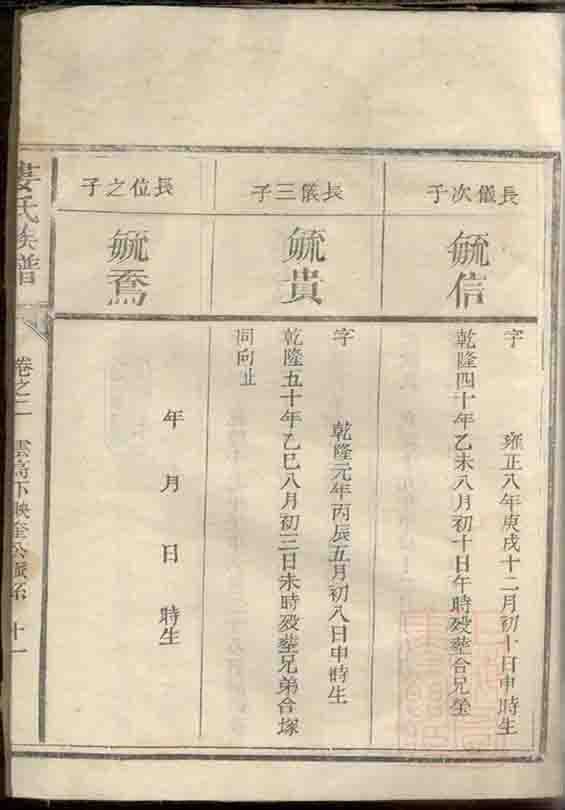 長儀次子
毓信
字
雍正八年庚戌十二月初十日申時生
乾隆四十年乙未八月初十日午時歿塟合兄塋
長儀三子
毓貴
字
乾隆元年丙辰五月初八日申時生
乾隆五十年乙巳八月初三日未時歿塟兄弟合塚
同向址
長位之子
毓鴌
年 月 日 時生
婁氏族譜
卷之二
雲高下映奎公派系 十一